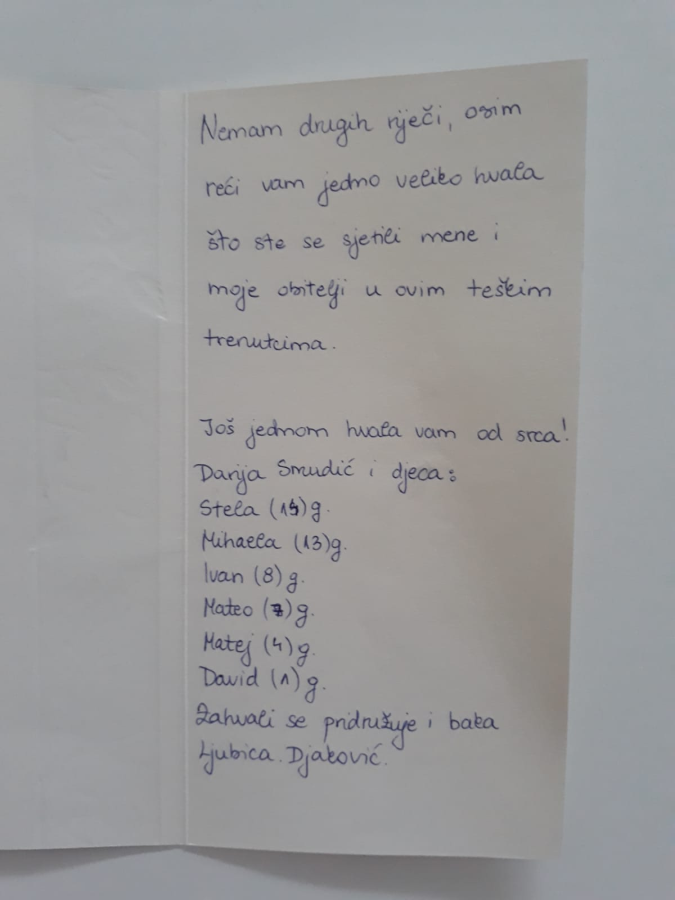 Nemam drugih riječi, osim
reći vam jedno veliko hvala
što ste se sjetili mene i
moje obitelji u ovim teškim
trenutcima.
Još jednom hvala vam od srca!
Darija Smudić i djeca:
Stela ()g.
Mihaela (13)g.
Ivan (8)g.
Mateo (7)g.
Matej (4)g.
David (1)g.
Zahvali se pridružuje i baka
Ljubica. Djaković.